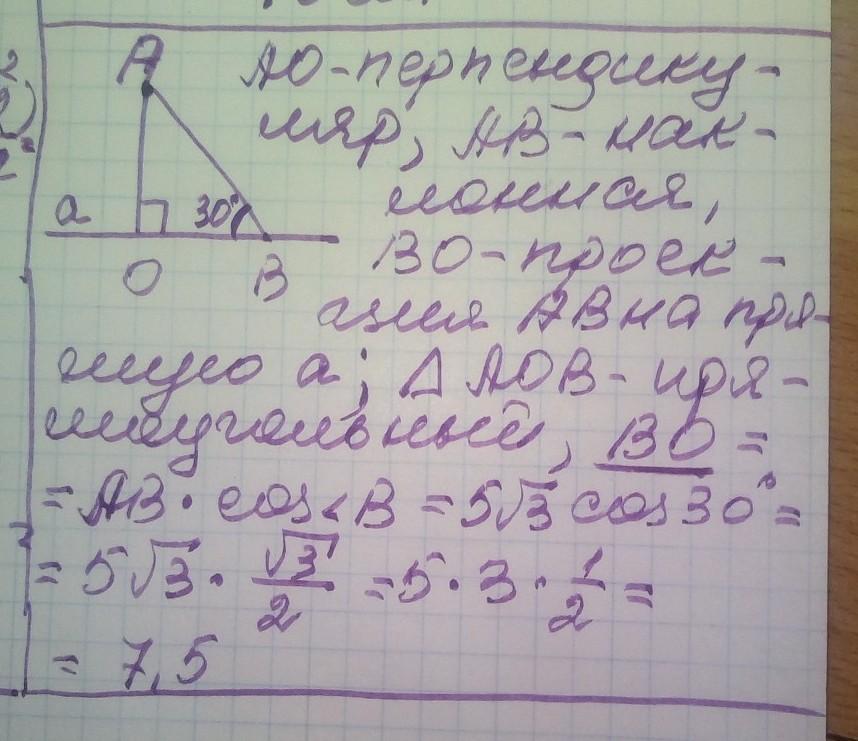 A
АО-перпендику-
ляр, АВ-нак-
лонная,
a
30°
O
B
ВО-проек-
ция АВ на пря-
мую a; Δ АОВ-пря-
моугольный, ВО =
= АВ · cos∠B = 5√3 cos 30° =
= 5√3 · √3/2 = 5 · 3 · 1/2 =
= 7,5